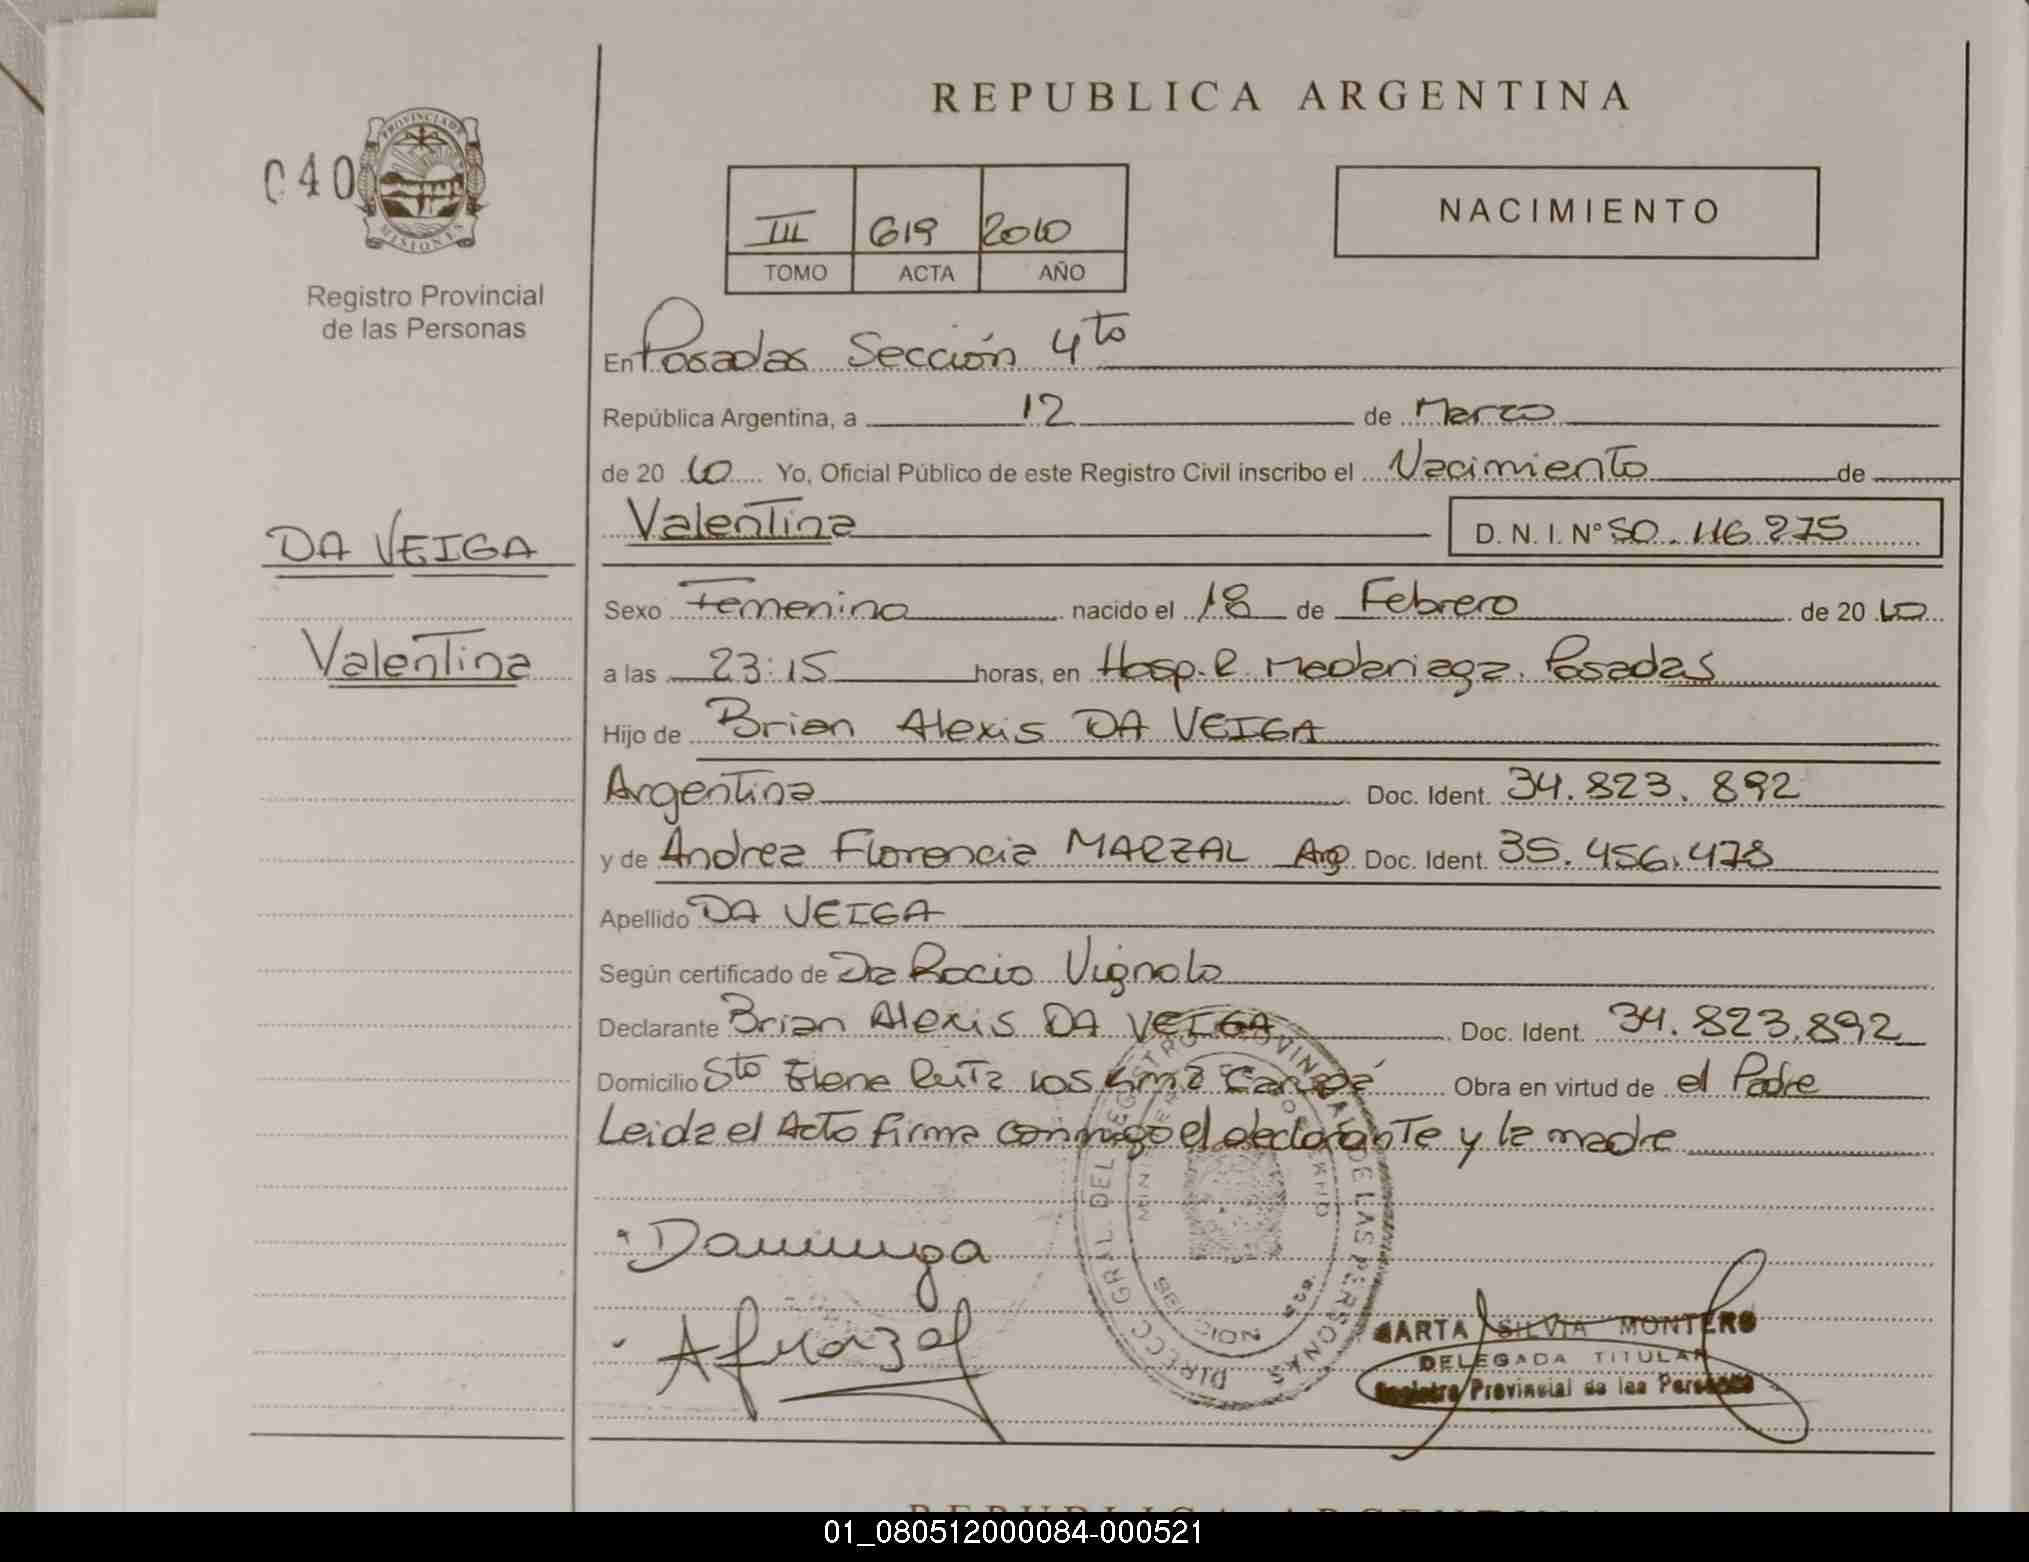 REPUBLICA ARGENTINA
040
PROVINCIA DE
MISIONES
Registro Provincial
de las Personas
III 619 2010
TOMO ACTA AÑO
NACIMIENTO
En Posadas Sección 4to
República Argentina, a 12 de Marzo
de 20 10 Yo, Oficial Público de este Registro Civil inscribo el Nacimiento de
DA VEIGA
Valentina
Valentina D. N. I. Nº 50.116.275
Sexo Femenino nacido el 18 de Febrero de 20 10
a las 23:15 horas, en Hosp. R. Madariaga. Posadas
Hijo de Brian Alexis DA VEIGA
Argentina Doc. Ident. 34.823.892
y de Andrea Florencia MARZAL Arg Doc. Ident. 35.456.478
Apellido DA VEIGA
Según certificado de Da Rocio Vignolo
Declarante Brian Alexis DA VEIGA Doc. Ident. 34.823.892
Domicilio Sta Elena Ruta 105 Obra en virtud de el Padre
Leida el Acta firma conmigo el declarante y la madre
DIRECC GRAL DEL REGISTRO PROVINCIAL DE LAS PERSONAS
MARTA SILVIA MONTERO
DELEGADA TITULAR
Registro Provincial de las Personas
REPUBLICA ARGENTINA
01_080512000084-000521